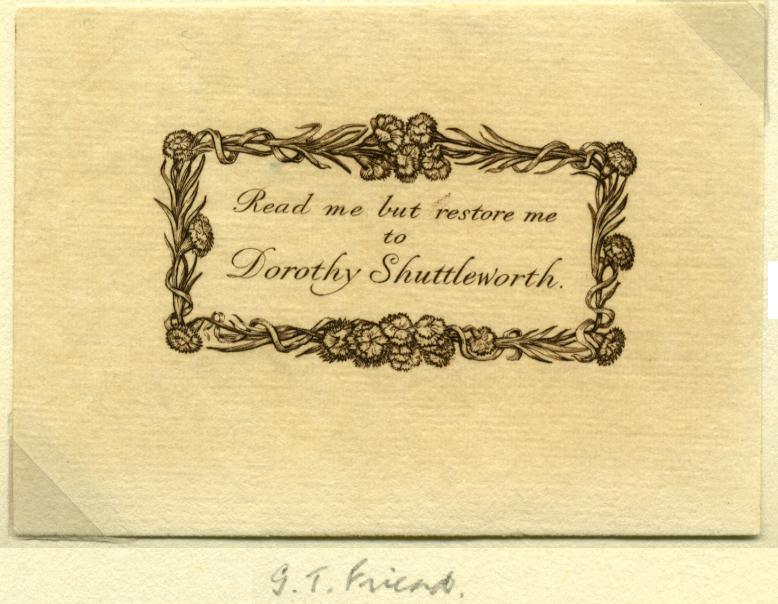 Read me but restore me
to
Dorothy Shuttleworth.
G. T. Friend.